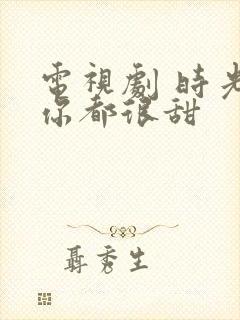 電視劇 時光
你都很甜
聶秀生